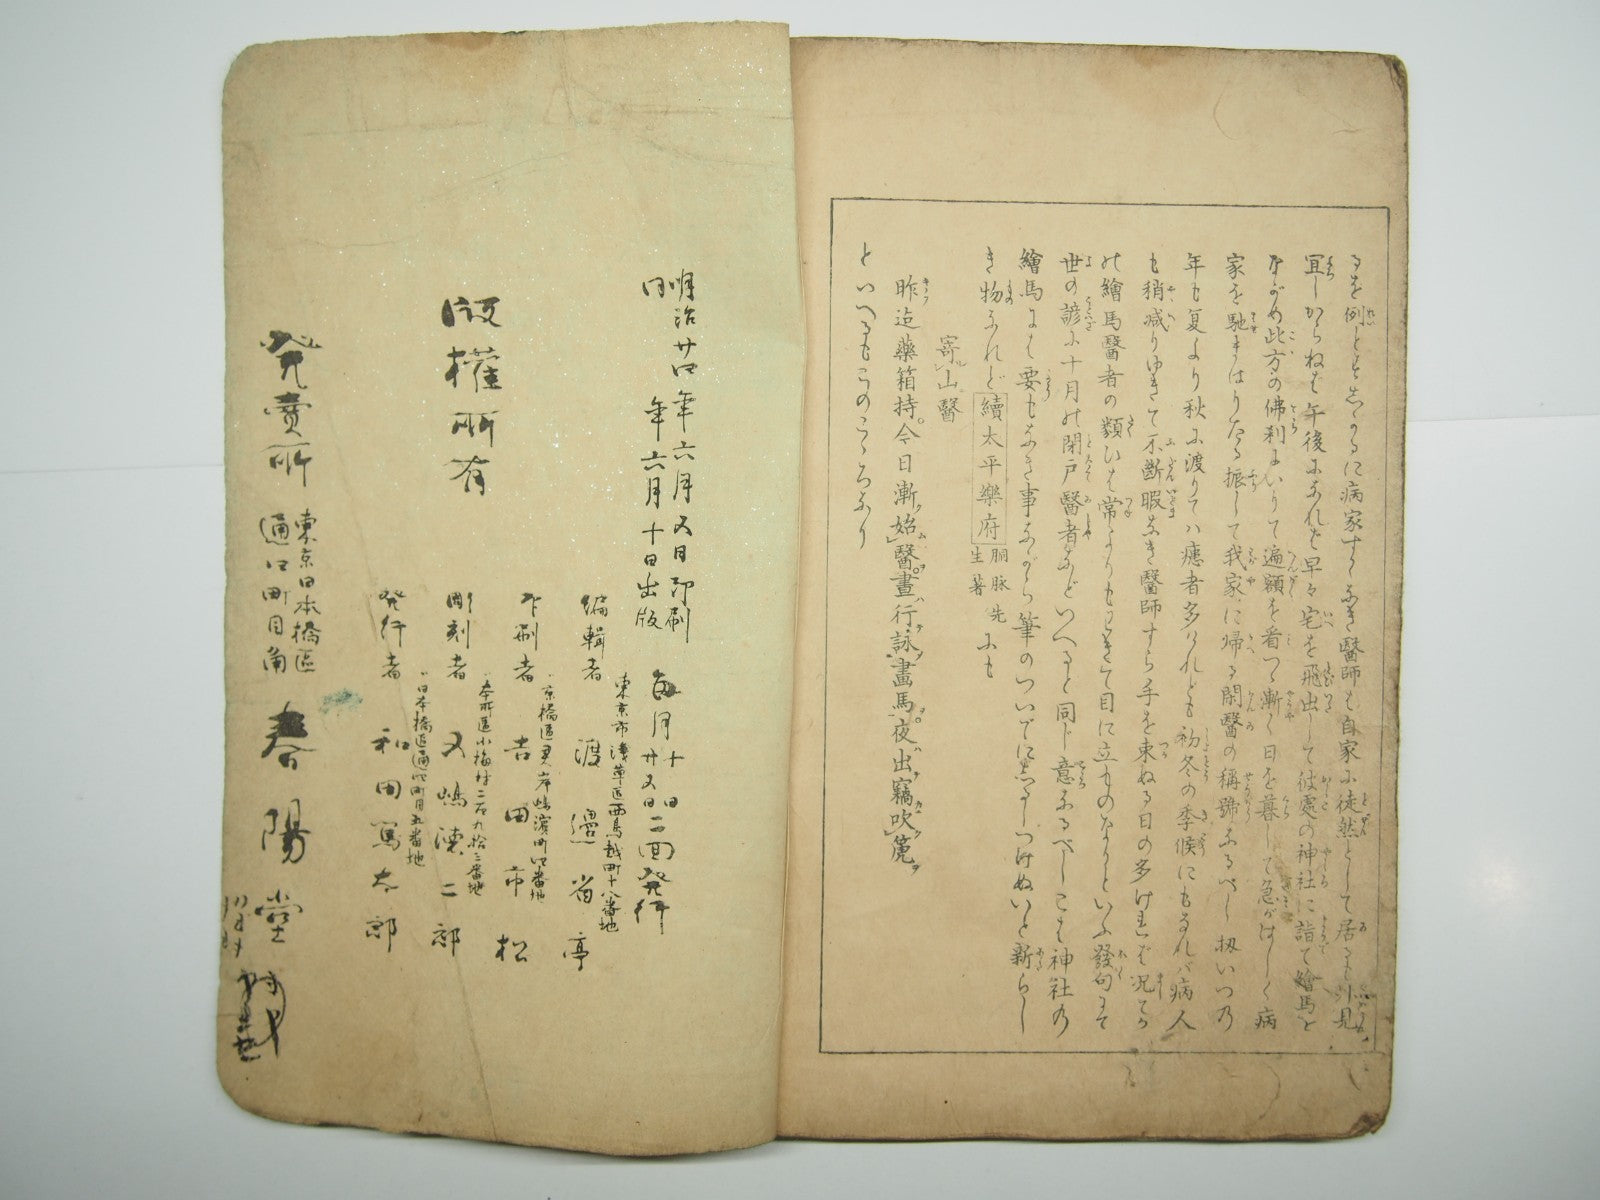 るを例とすしかるに病家すくなき醫師も自家に徒然として居るも外見
宜しからねば午後になれば早々宅を飛出して彼處の神社に詣て繪馬を
ながめ此方の佛刹にいりて遍額を看つゝ漸く日を暮して急がはしく病
家を馳まはりたる振して我家に帰る閑醫の稱號なるべし扨いつの
年も夏より秋に渡りてハ瘧者多けれども初冬の季候にもなれバ病人
も稍減りゆきて不断暇なき醫師すら手を束ぬる日の多ければ况てか
の繪馬醫者の類ひは常よりも
て目に立ものなりといふ發句にて
世の諺に十月の閉戸醫者などいへると同じ意なるべしこは神社の
繪馬には要もなき事ながら筆のついでに
しつけぬいと新らし
き物なれど續太平樂府
胴脉先
生著
にも
寄山醫
昨迄藥箱持。今日漸始醫。晝行詠畫馬。夜出竊吹篪
といへるもこのこゝろなり
明治廿四年六月五日印刷
同年六月十日出版
毎月十日廿五日二回発行
版權所有
編輯者
東京市淺草區西鳥越町十八番地
渡邉省亭
印刷者
京橋區灵岸嶋濱町四番地
吉田市松
彫刻者
本所區小梅村二百九拾三番地
五嶋
二郎
発行者
日本橋區通四町目五番地
和田篤太郎
発賣所
東京日本橋區
通四町目角
春陽堂